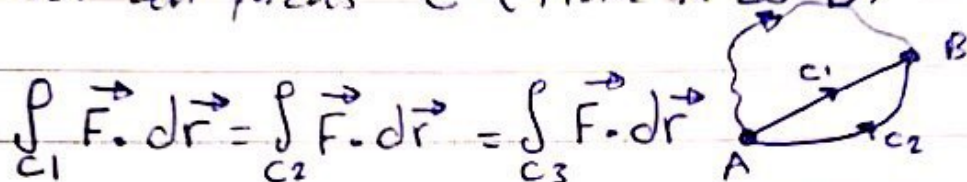 ∫C1 F⃗. dr⃗ = ∫C2 F⃗. dr⃗ = ∫C3 F⃗. dr⃗
C1
B
A
C2